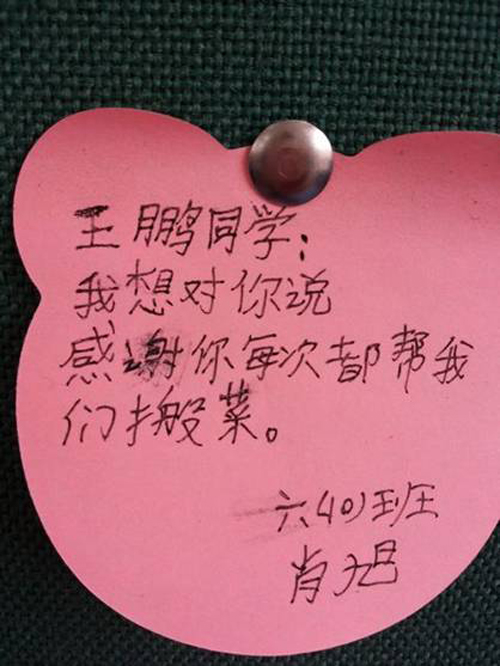 王鹏同学：
我想对你说
感谢你每次都帮我
们搬菜。
六(4)班
肖旭